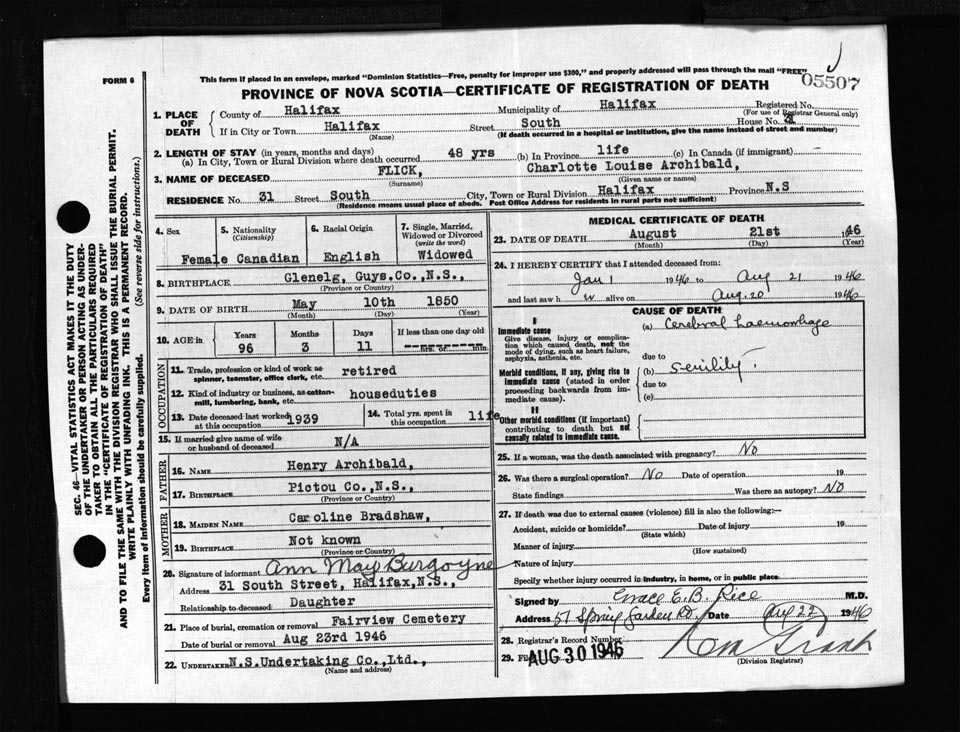 This form if placed in an envelope, marked "Dominion Statistics—Free, penalty for improper use $300," and properly addressed will pass through the mail "FREE"
FORM 6
05507
PROVINCE OF NOVA SCOTIA—CERTIFICATE OF REGISTRATION OF DEATH
SEC. 46—VITAL STATISTICS ACT MAKES IT THE DUTY
OF THE UNDERTAKER OR PERSON ACTING AS UNDER-
TAKER TO OBTAIN ALL THE PARTICULARS REQUIRED
IN THE "CERTIFICATE OF REGISTRATION OF DEATH"
AND TO FILE THE SAME WITH THE DIVISION REGISTRAR WHO SHALL ISSUE THE BURIAL PERMIT.
WRITE PLAINLY WITH UNFADING INK. THIS IS A PERMANENT RECORD.
Every item of information should be carefully supplied. (See reverse side for instructions.)
1. PLACE OF DEATH
County of Halifax Municipality of Halifax Registered No.
(For use of Registrar General only)
If in City or Town Halifax Street South House No.
(Name) (If death occurred in a hospital or institution, give the name instead of street and number)
2. LENGTH OF STAY (in years, months and days)
(a) In City, Town or Rural Division where death occurred 48 yrs (b) In Province life (c) In Canada (if immigrant) -
3. NAME OF DECEASED FLICK, Charlotte Louise Archibald,
(Surname) (Given name or names)
RESIDENCE No. 31 Street South City, Town or Rural Division Halifax Province N.S
(Residence means usual place of abode. Post Office Address for residents in rural parts not sufficient)
4. Sex
Female
5. Nationality
(Citizenship)
Canadian
6. Racial Origin
English
7. Single, Married,
Widowed or Divorced
(write the word)
Widowed
8. BIRTHPLACE Glenelg, Guys.Co.,N.S.,
(Province or Country)
9. DATE OF BIRTH May 10th 1850
(Month) (Day) (Year)
10. AGE in Years Months Days If less than one day old
96 3 11 hrs. or min.
OCCUPATION
11. Trade, profession or kind of work as
spinner, teamster, office clerk, etc. retired
12. Kind of industry or business, as cotton-
mill, lumbering, bank, etc. houseduties
13. Date deceased last worked
at this occupation 1939
14. Total yrs. spent in
this occupation life
15. If married give name of wife
or husband of deceased N/A
FATHER
16. NAME Henry Archibald,
17. BIRTHPLACE Pictou Co.,N.S.,
(Province or Country)
MOTHER
18. MAIDEN NAME Caroline Bradshaw,
19. BIRTHPLACE Not known
(Province or Country)
20. Signature of informant Ann May Burgoyne
Address 31 South Street, Halifax,N.S.,
Relationship to deceased Daughter
21. Place of burial, cremation or removal Fairview Cemetery
Date of burial or removal Aug 23rd 1946
22. UNDERTAKER N.S.Undertaking Co.,Ltd.,
(Name and address)
MEDICAL CERTIFICATE OF DEATH
23. DATE OF DEATH August 21st 1946
(Month) (Day) (Year)
24. I HEREBY CERTIFY that I attended deceased from:
Jan 1 1946 to Aug 21 1946
and last saw h er alive on Aug. 20 1946
CAUSE OF DEATH
I
Immediate cause
Give disease, injury or complica-
tion which caused death, not the
mode of dying, such as heart failure,
asphyxia, asthenia, etc.
(a) Cerebral haemorrhage
due to
Morbid conditions, if any, giving rise to
immediate cause (stated in order
proceeding backwards from im-
mediate cause).
(b) Senility.
due to
(c)
II
Other morbid conditions (if important)
contributing to death but not
causally related to immediate cause.
25. If a woman, was the death associated with pregnancy? No
26. Was there a surgical operation? No Date of operation 19
State findings Was there an autopsy? No
27. If death was due to external causes (violence) fill in also the following:—
Accident, suicide or homicide? Date of injury 19
(State which)
Manner of injury
(How sustained)
Nature of injury
Specify whether injury occurred in industry, in home, or in public place
Signed by Grace E.B. Rice M.D.
Address 57 Spring Garden Rd. Date Aug 22 1946
28. Registrar's Record Number
29. AUG 30 1946
(Division Registrar)